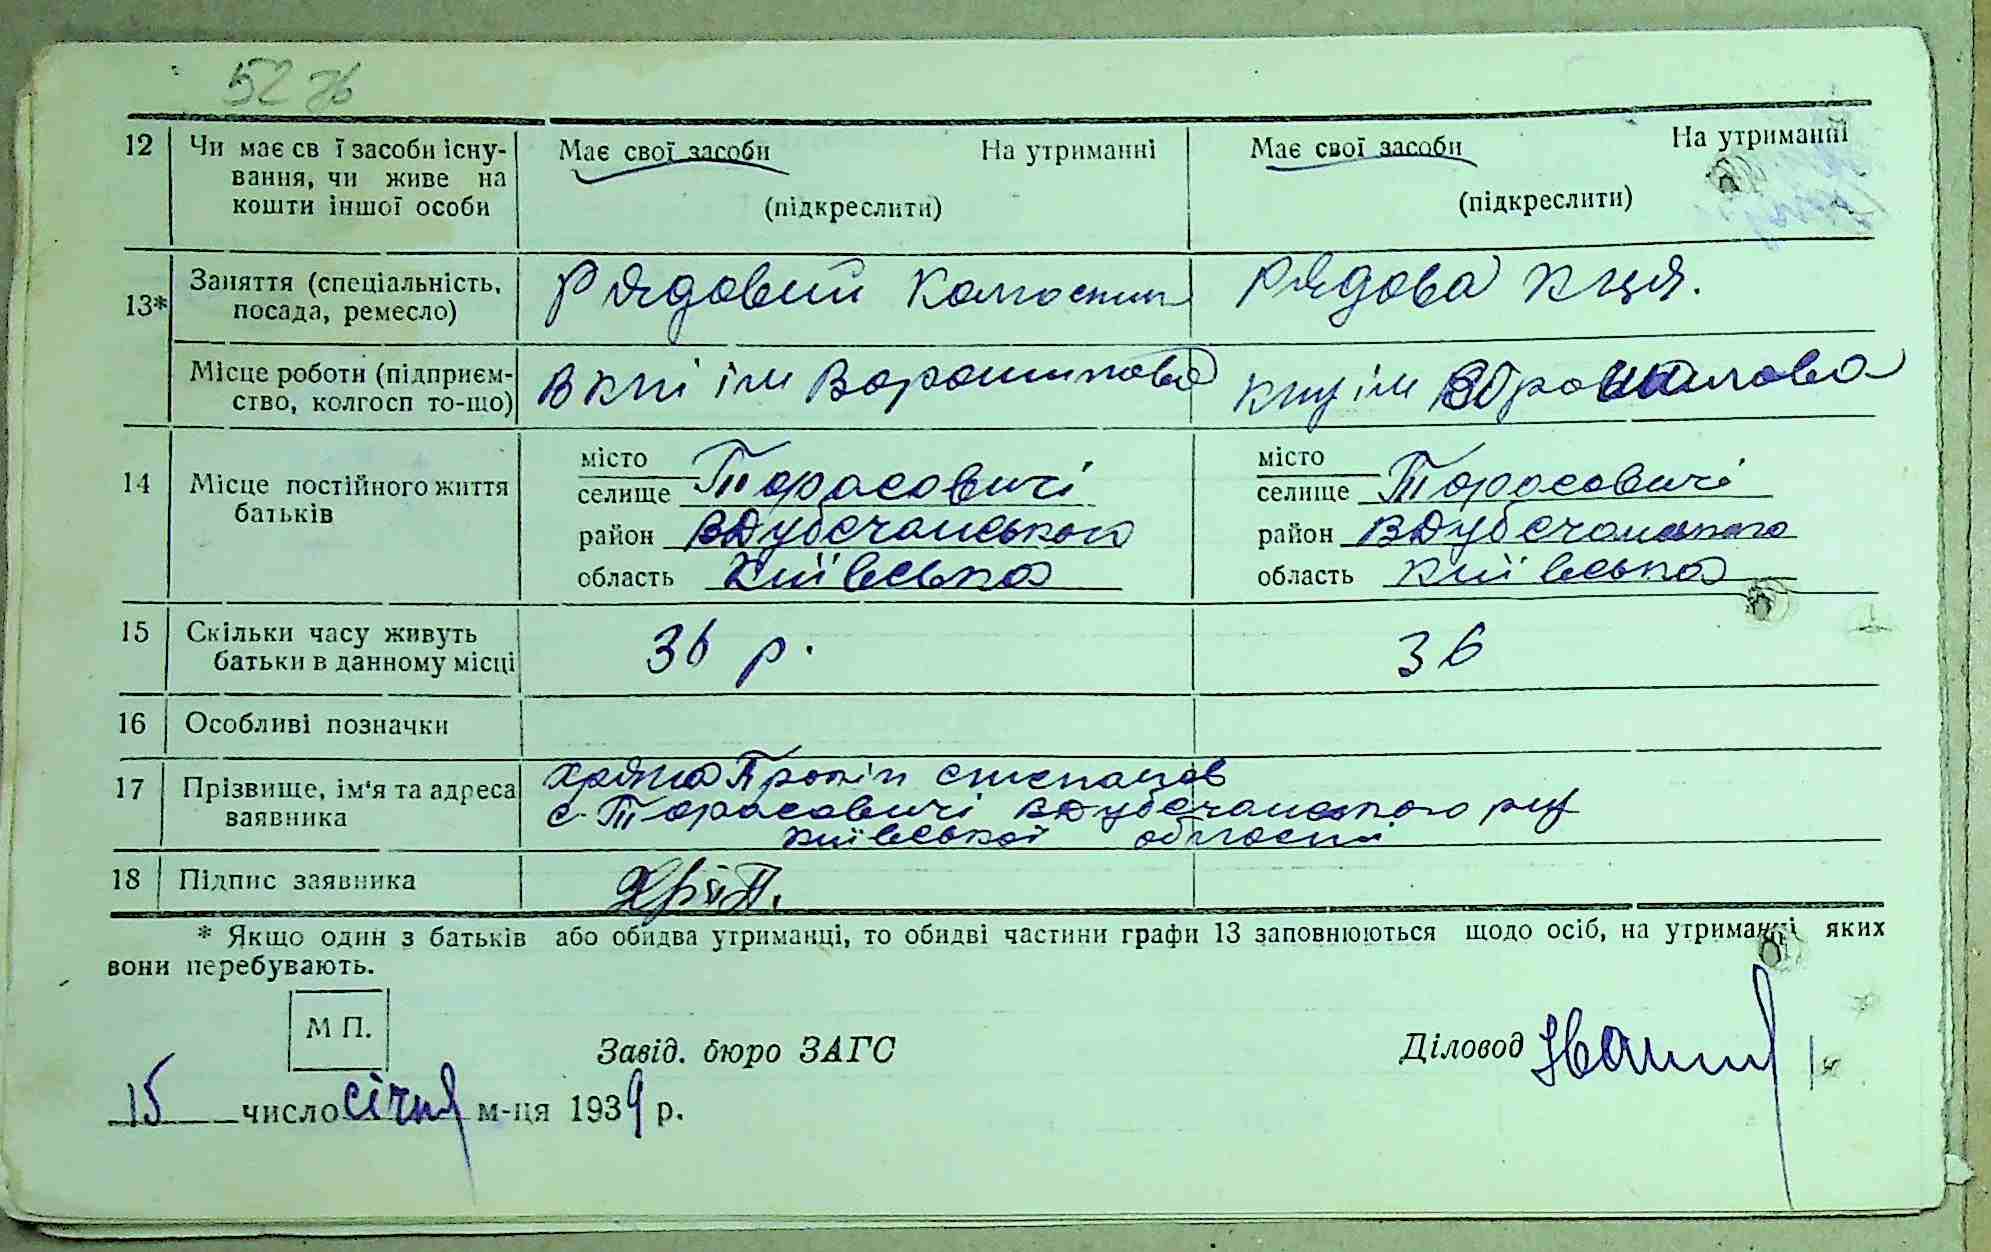 52 зв
12 Чи має св ї засоби існу- Має свої засоби На утриманні Має свої засоби На утриманні
вання, чи живе на
кошти іншої особи (підкреслити) (підкреслити)
13* Заняття (спеціальність, Рядовий колгоспник Рядова к-ця.
посада, ремесло)
Місце роботи (підприєм- В кгпі ім Ворошилова кгпу ім Ворошилова
ство, колгосп то-що)
14 Місце постійного життя місто місто
батьків селище Торасовичі селище Торасовичі
район ВДубечанського район ВДубечанського
область Київська область Київська
15 Скільки часу живуть 36 р. 36
батьки в данному місці
16 Особливі позначки
17 Прізвище, ім'я та адреса Прокіп степанов
заявника с. Торасовичі ВДубечанського р-ну
київської області
18 Підпис заявника
* Якщо один з батьків або обидва утриманці, то обидві частини графи 13 заповнюються щодо осіб, на утриманні яких
вони перебувають.
М П.
Завід. бюро ЗАГС Діловод
15 число січня м-ця 1939 р.